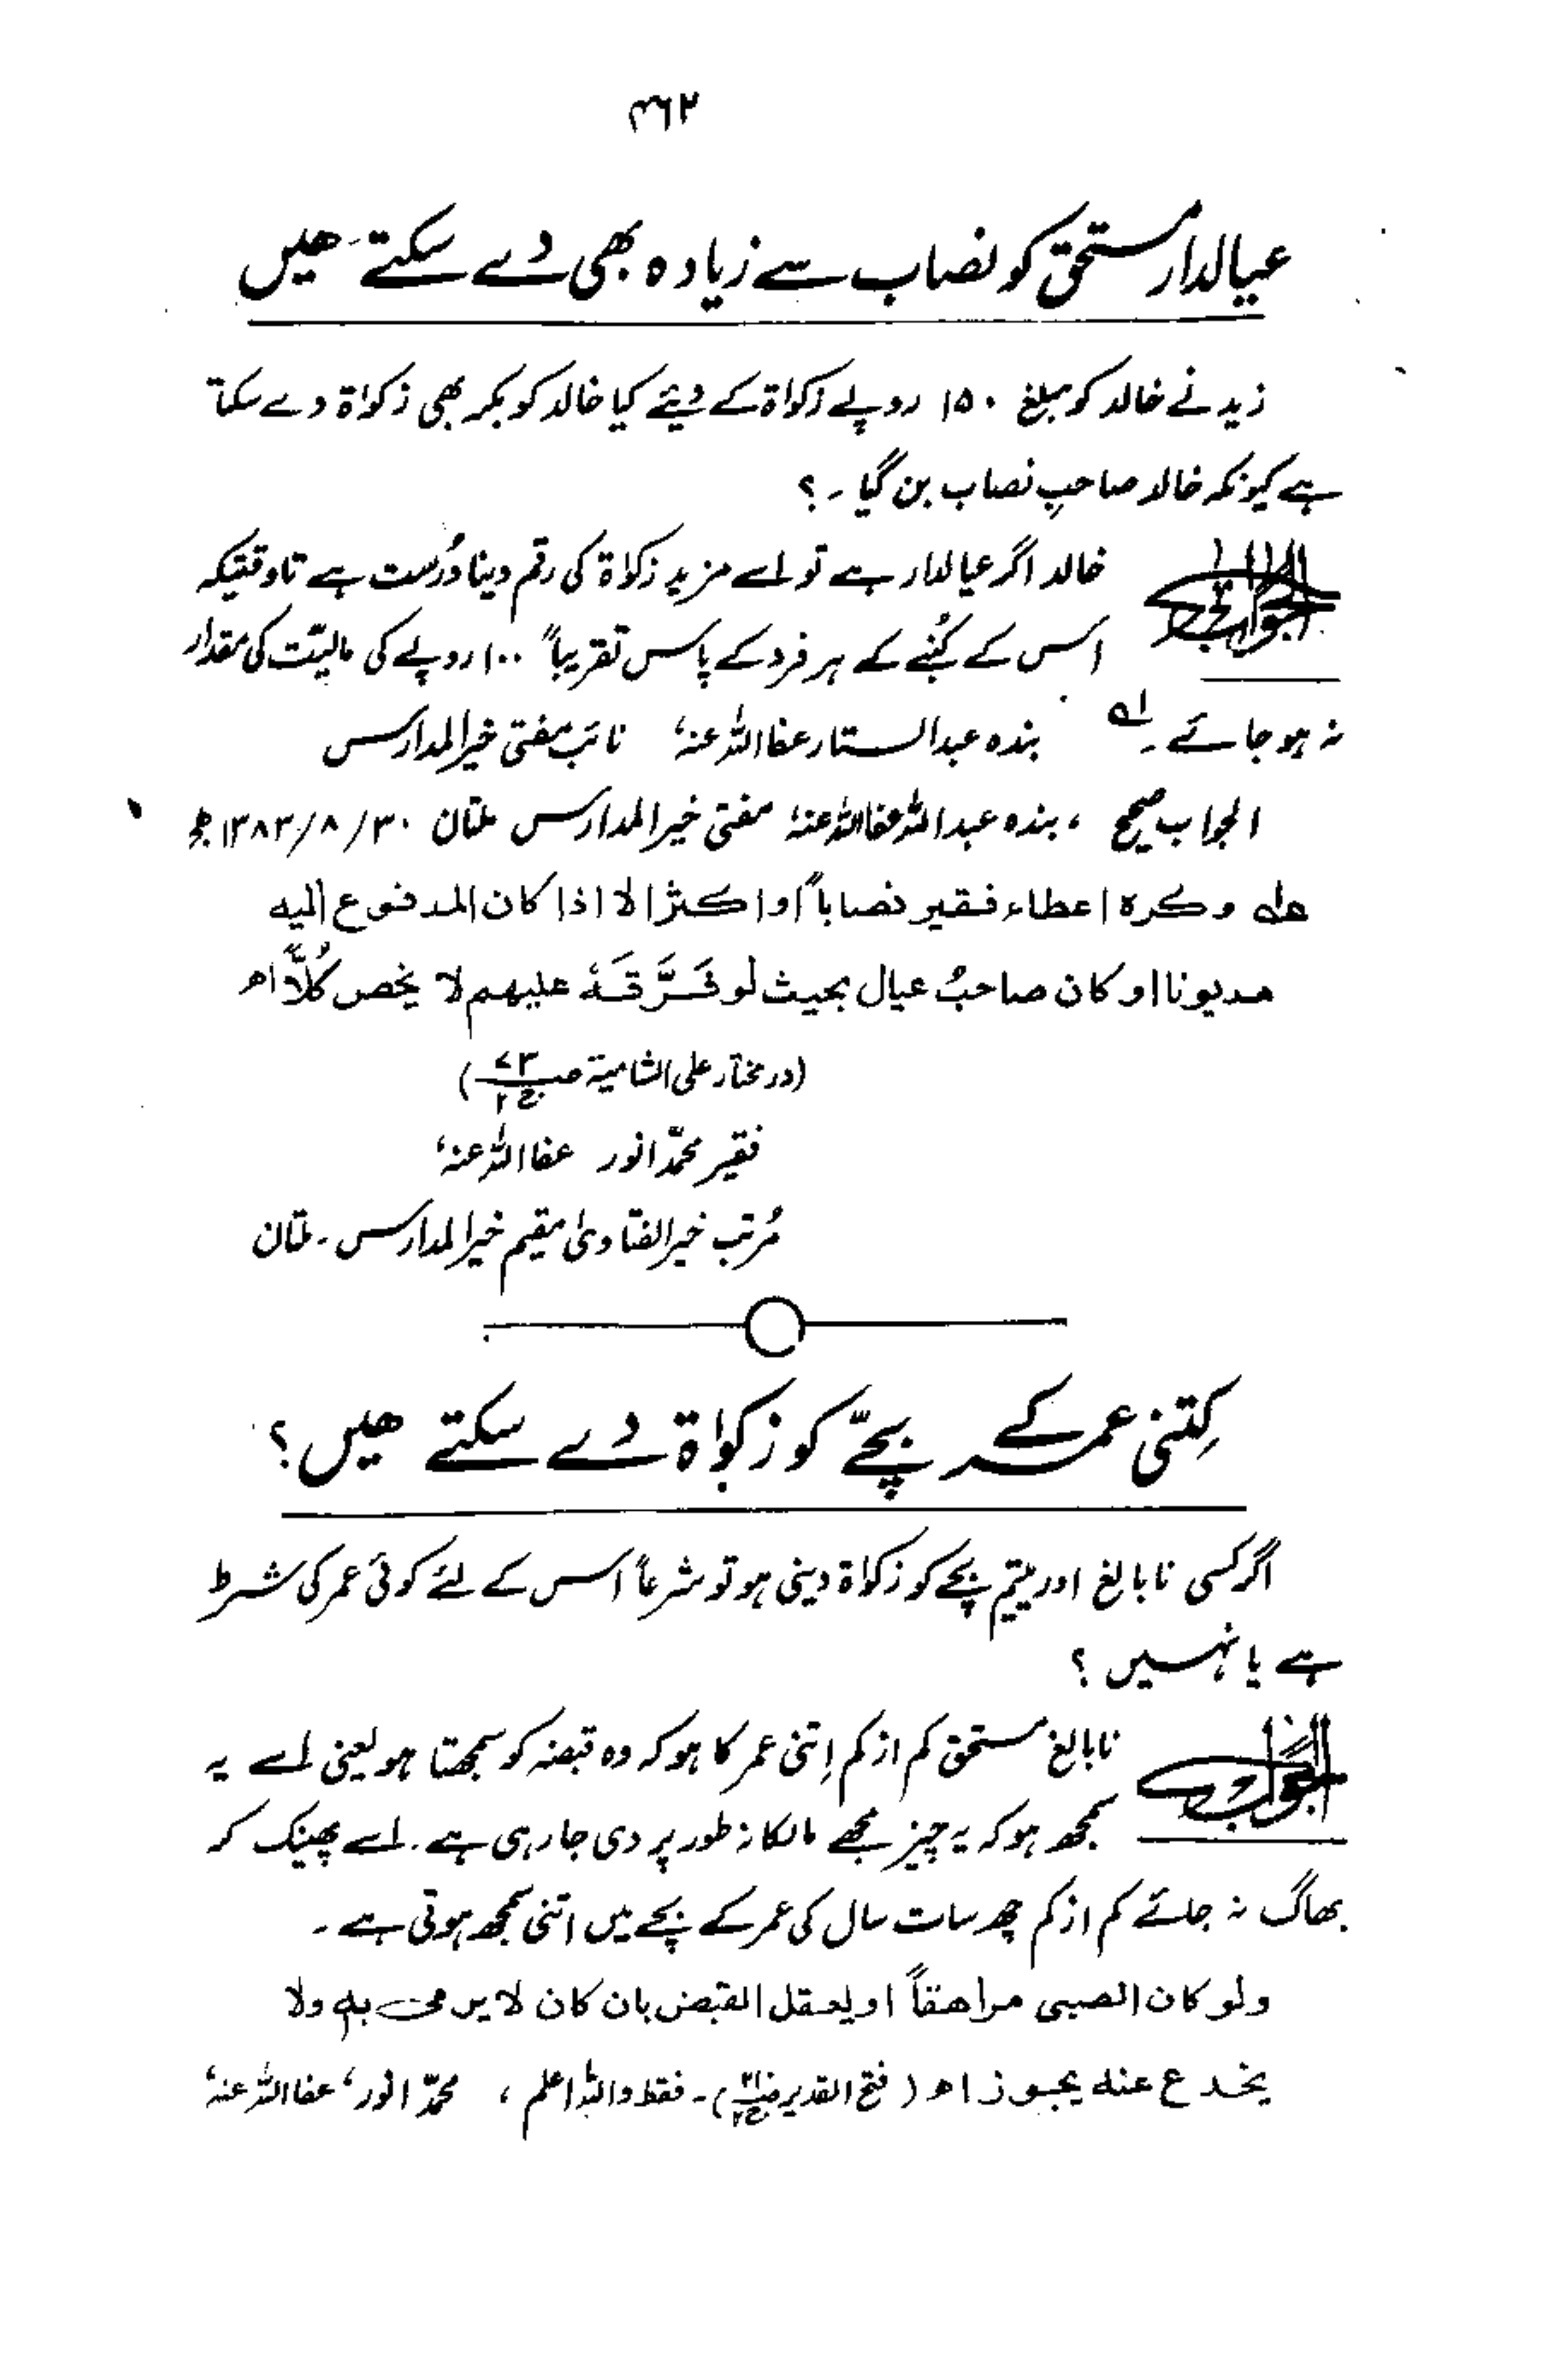 ۳۶۲
عیالدار مستحق کو نصاب سے زیادہ بھی دے سکتے ہیں
زید نے خالد کو مبلغ ۱۵۰ روپے زکواۃ کے دیئے کیا خالد کو بکر بھی زکواۃ دے سکتا
ہے کیونکہ خالد صاحبِ نصاب بن گیا ۔ ؟
الجواب خالد اگر عیالدار ہے تو اسے مزید زکواۃ کی رقم دینا دُرست ہے تاوقتیکہ
اس کے کُنبے کے ہر فرد کے پاس تقریباً ۱۰۰ روپے کی مالیّت کی مقدار
نہ ہو جائے ۔ لہ بندہ عبدالستار عفا اللہ عنہٗ نائب مفتی خیرالمدارس
الجواب صحیح ، بندہ عبداللہ عفا اللہ عنہٗ مفتی خیرالمدارس ملتان ۳۰/۸/۱۳۸۳ھ
علہ وکرہ اعطاء فقیر نصاباً او اکثر الا اذا کان المدفوع الیہ
مدیونا او کان صاحبُ عیال بحیث لو فَرَّقَہٗ علیہم لا یخص کُلّاً اھ
(درمختار علی الشامیۃ صـ۷۳ ج۲)
فقیر محمّد انور عفا اللہ عنہٗ
مُرتب خیرالفتاویٰ مقیم خیرالمدارس ۔ ملتان
کِتنی عمر کے بچّے کو زکوٰاۃ دے سکتے ہیں ؟
اگر کسی نابالغ اور یتیم بچے کو زکواۃ دینی ہو تو شرعاً اس کے لئے کوئی عمر کی شرط
ہے یا نہیں ؟
الجواب نابالغ مستحق کم از کم اِتنی عمر کا ہو کہ وہ قبضہ کو سمجھتا ہو یعنی اسے یہ
سمجھ ہو کہ یہ چیز مجھے مالکانہ طور پر دی جا رہی ہے ۔ اسے پھینک کر
بھاگ نہ جائے کم از کم چھ سات سال کی عمر کے بچے میں اتنی سمجھ ہوتی ہے ۔
ولو کان الصبی مراھقاً او یعقل القبض بان کان لا یرمی بہ ولا
یخدع عنہ یجوز اھ (فتح القدیر ج۲) ۔ فقط واللہ اعلم ، محمّد انور، عفا اللہ عنہٗ